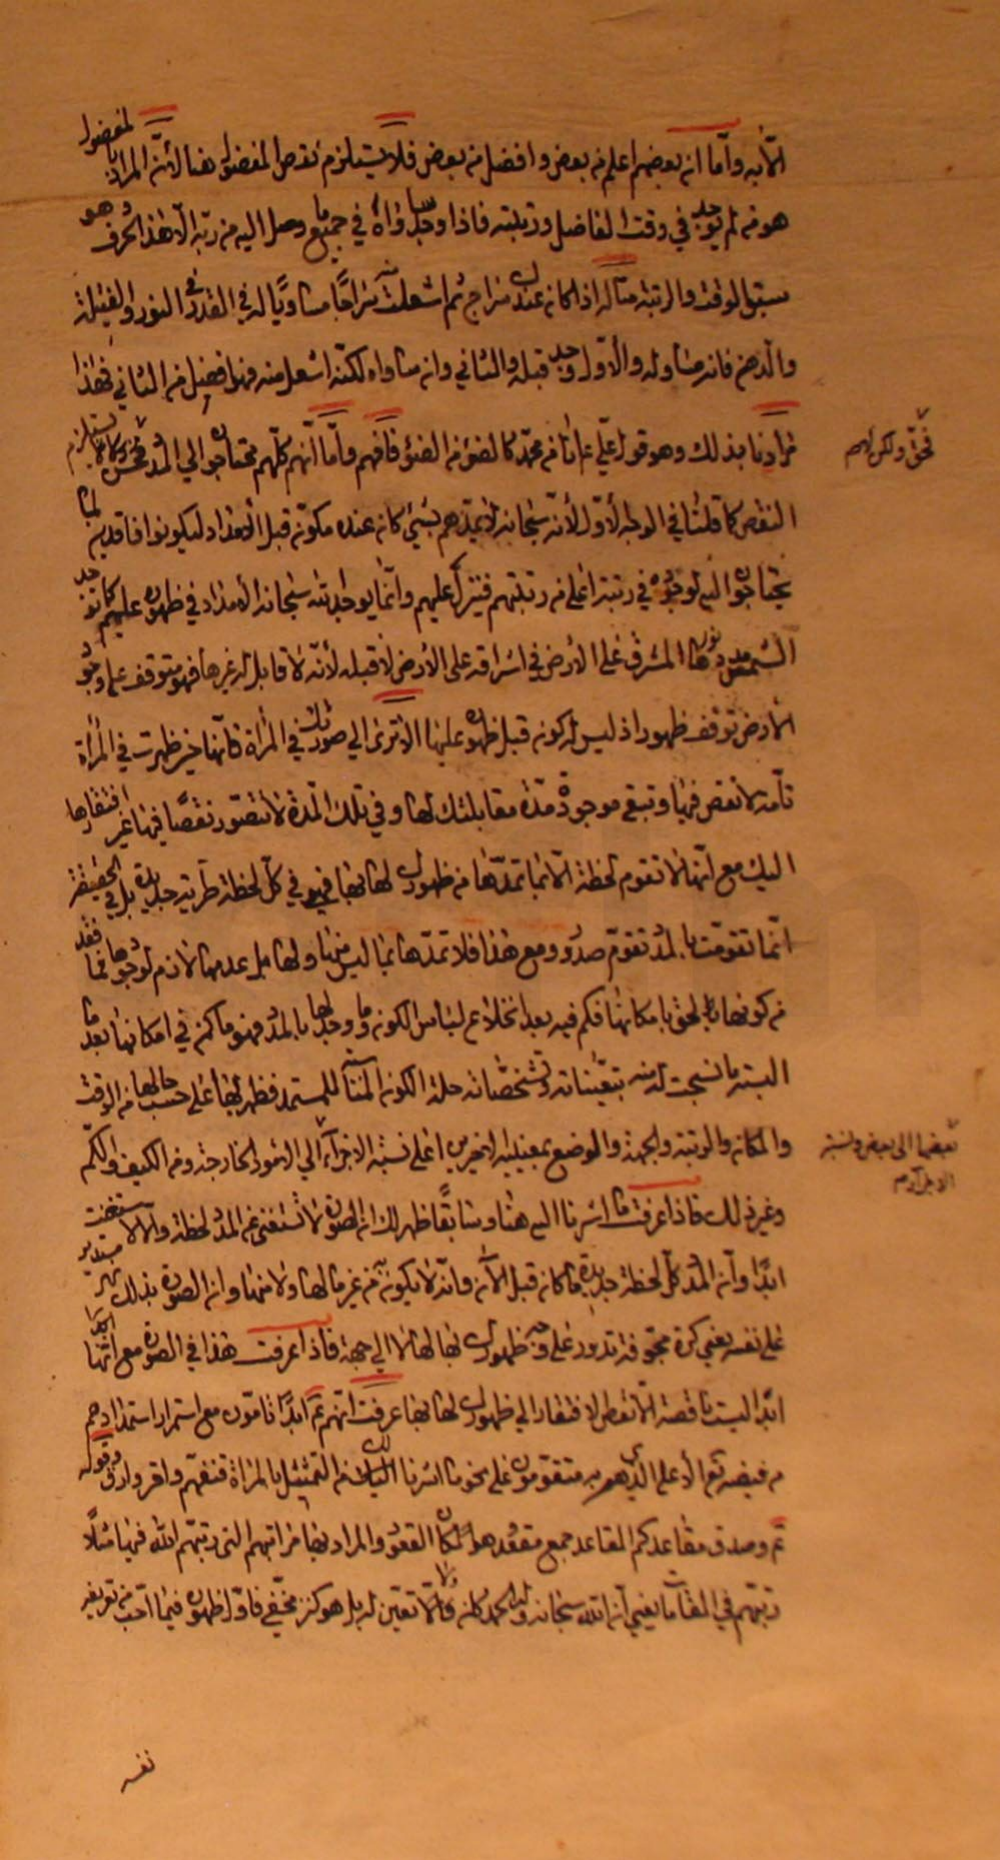 الّا به وامّا ان بعضهم اعلم من بعض وافضل من بعض فلا يستلزم نقص المفضول هنا لانّ المراد بالمفضول
هو من لم يوجد في وقت الفاضل ورتبته فاذا وجد ساواه في جميع ما وصل اليه من ربّه الّا هذا الحرف وهو
سبق الوقت والرتبة مثاله اذا كان عندك سراج ثم اشعلت منه سراجًا مساويًا له في القدر وفي النور والفتيلة
والدهن فانه مساو له والأوّل وجد قبله والثاني وان ساواه لكنّه اشعل منه فهو افضل من الثاني فهذا
مرادنا بذلك وهو قول عليّ ع انا من محمّد كالضوء من الضوء فافهم وامّا انّهم كلّهم محتاجون الي المدد فحقّ ولكن لا يستلزم
فحقّ ولكن لهم
النقص كما قلنا في الوجه الأوّل لأنّه سبحانه لا يمدّهم بشيئ كان عنده مكوّن قبل الامداد ليكونوا فاقدين لما
يحتاجون اليه لوجوده في رتبة اعلي من رتبتهم فينزل عليهم وانّما يوجد الله سبحانه الامداد في ظهوره عليهم كما توجد
الشمس نورها المشرق علي الأرض في اشراقه علي الأرض لا قبله لأنّه لا قابل له غيرها فهو متوقف علي وجود
الأرض توقف ظهور اذ ليس له كون قبل ظهوره عليها الا تري الي صورتك في المرأة فانها حين ظهرت في المرأة
تامّة لا نقص فيها وتبقي موجودة مدّة مقابلتك لها وفي تلك المدّة لا تتصوّر نقصًا فيها غير افتقارها
اليك مع انّها لا تقوم لحظة الّا بما تمدّها من ظهورك لها بها فهي في كلّ لحظة طريّة جديدة بل في الحقيقة
انّما تقوّمت بالمدد تقوّم صدور ومع هذا فلا تمدّها بما ليس منها ولها بل عدمها لازم لوجودها فما فقد
من كونها يلحق بامكانها فكم فيه بعد انخلاع لباس الكون وما وجد لها بالمدد فهو ما كمن في امكانها بعد ما
البسته ما نسجت له منه بتعيّناته وتشخّصاته حلة الكون المناسبة للمستمد فظهر بها علي حسب حالها من الوقت
والمكان والرتبة والجهة والوضع بمعنييه الاخيرين اعلي نسبة الاجزاء الي الأمور الخارجة ومن الكيف والكمّ
بعضها الي بعض ونسبة
الاجزاء م
وغير ذلك فاذا عرفت ما اشرنا اليه هنا وسابقًا ظهر لك ان الصورة لا تستغني عن المدد لحظة والّا لاستغنت
ابدًا وانّ المدد كلّ لحظة جديد ما كان قبل الآن وانّه لا يكون من غير ما لها ولا منها وان الصورة بذلك نهر مستدير
علي نفسه يعني كرة مجوّفة تدور علي وجه ظهورك لها بها لا الي جهة فاذا عرفت هذا في الصورة مع انّها ابدًا
ابدًا ليست ناقصة الّا نقص الافتقار الي ظهورك لها بها عرفت انّهم ع ابدًا تامّون مع استمرار استمدادهم
من فيضه تع الأعلي الذي هم به متقوّمون علي نحو ما اشرنا لك اليك من التمثيل بالمراة فتفهم واقر وارق وقوله
ع وصدق مقاعدكم المقاعد جمع مقعد هو مكان القعود والمراد بها مراتبهم التي رتبّهم الله فيها مثلًا
رتبتهم في المقامات يعني انّ الله سبحانه وله الحمد كان ولا تعيّن له بل هو كنز مخفي فاوّل ظهوره فيما احبّ من تعريف
نفسه